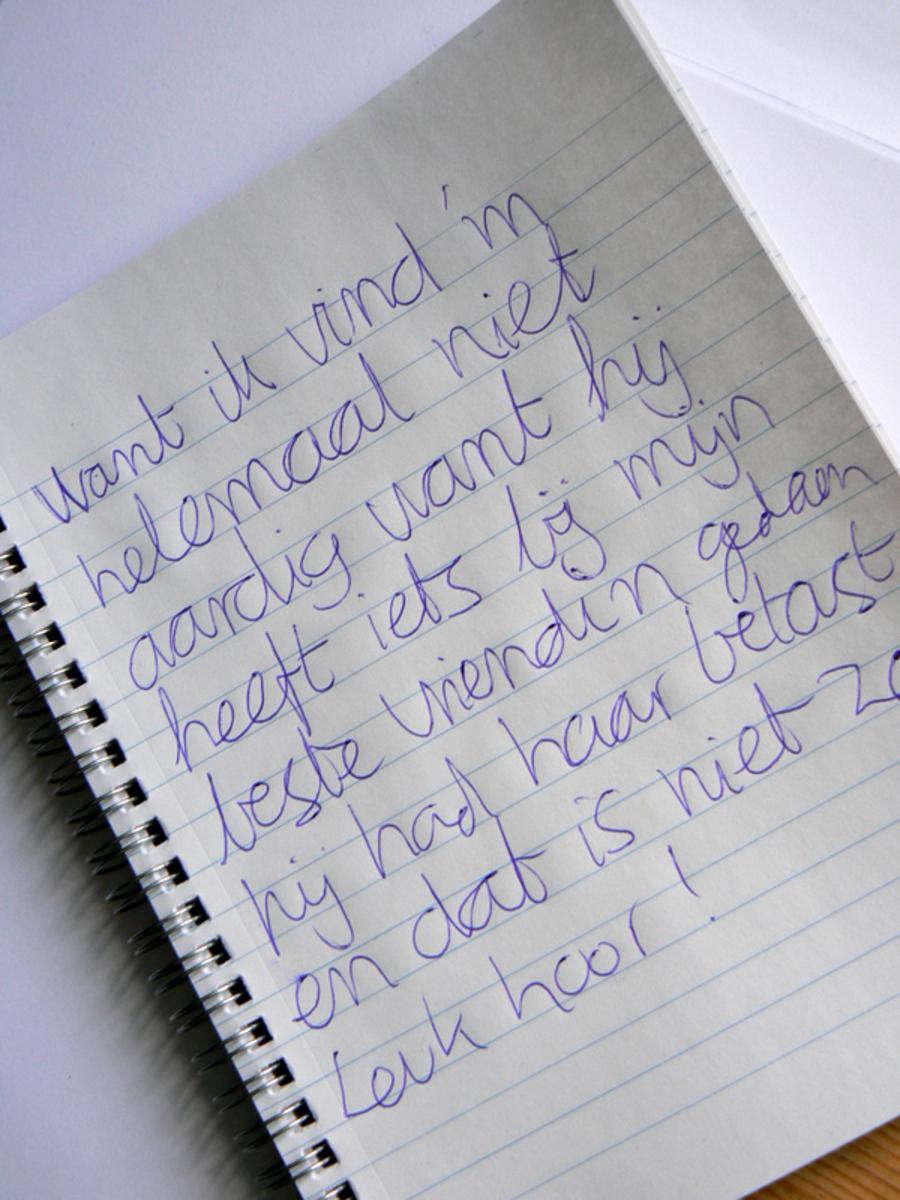 want ik vind 'm
helemaal niet
aardig want hij
heeft iets bij mijn
beste vriendin gedaan
hij had haar betast
en dat is niet zo
Leuk hoor!